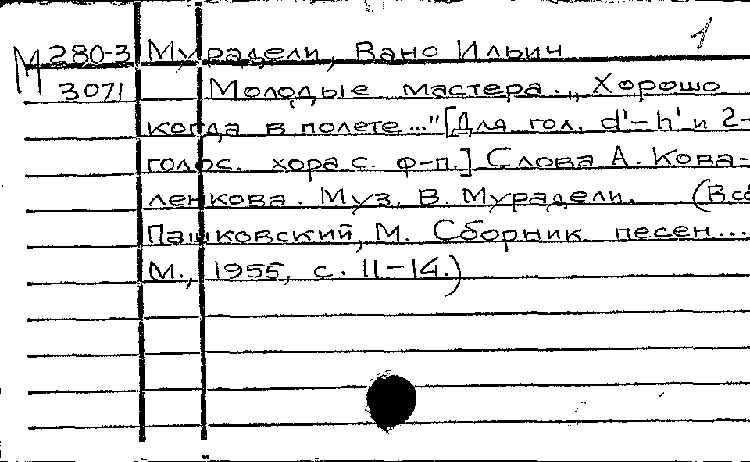 1
М 280-3 Мурадели, Вано Ильич
3071 Молодые мастера. „Хорошо
когда в полете..." [Для гол. d'-h' и 2-
голос. хора с. ф-п.] Слова А. Кова-
ленкова. Муз. В. Мурадели. (В сб
Пашковский, М. Сборник песен...
М., 1955, с. 11-14.)